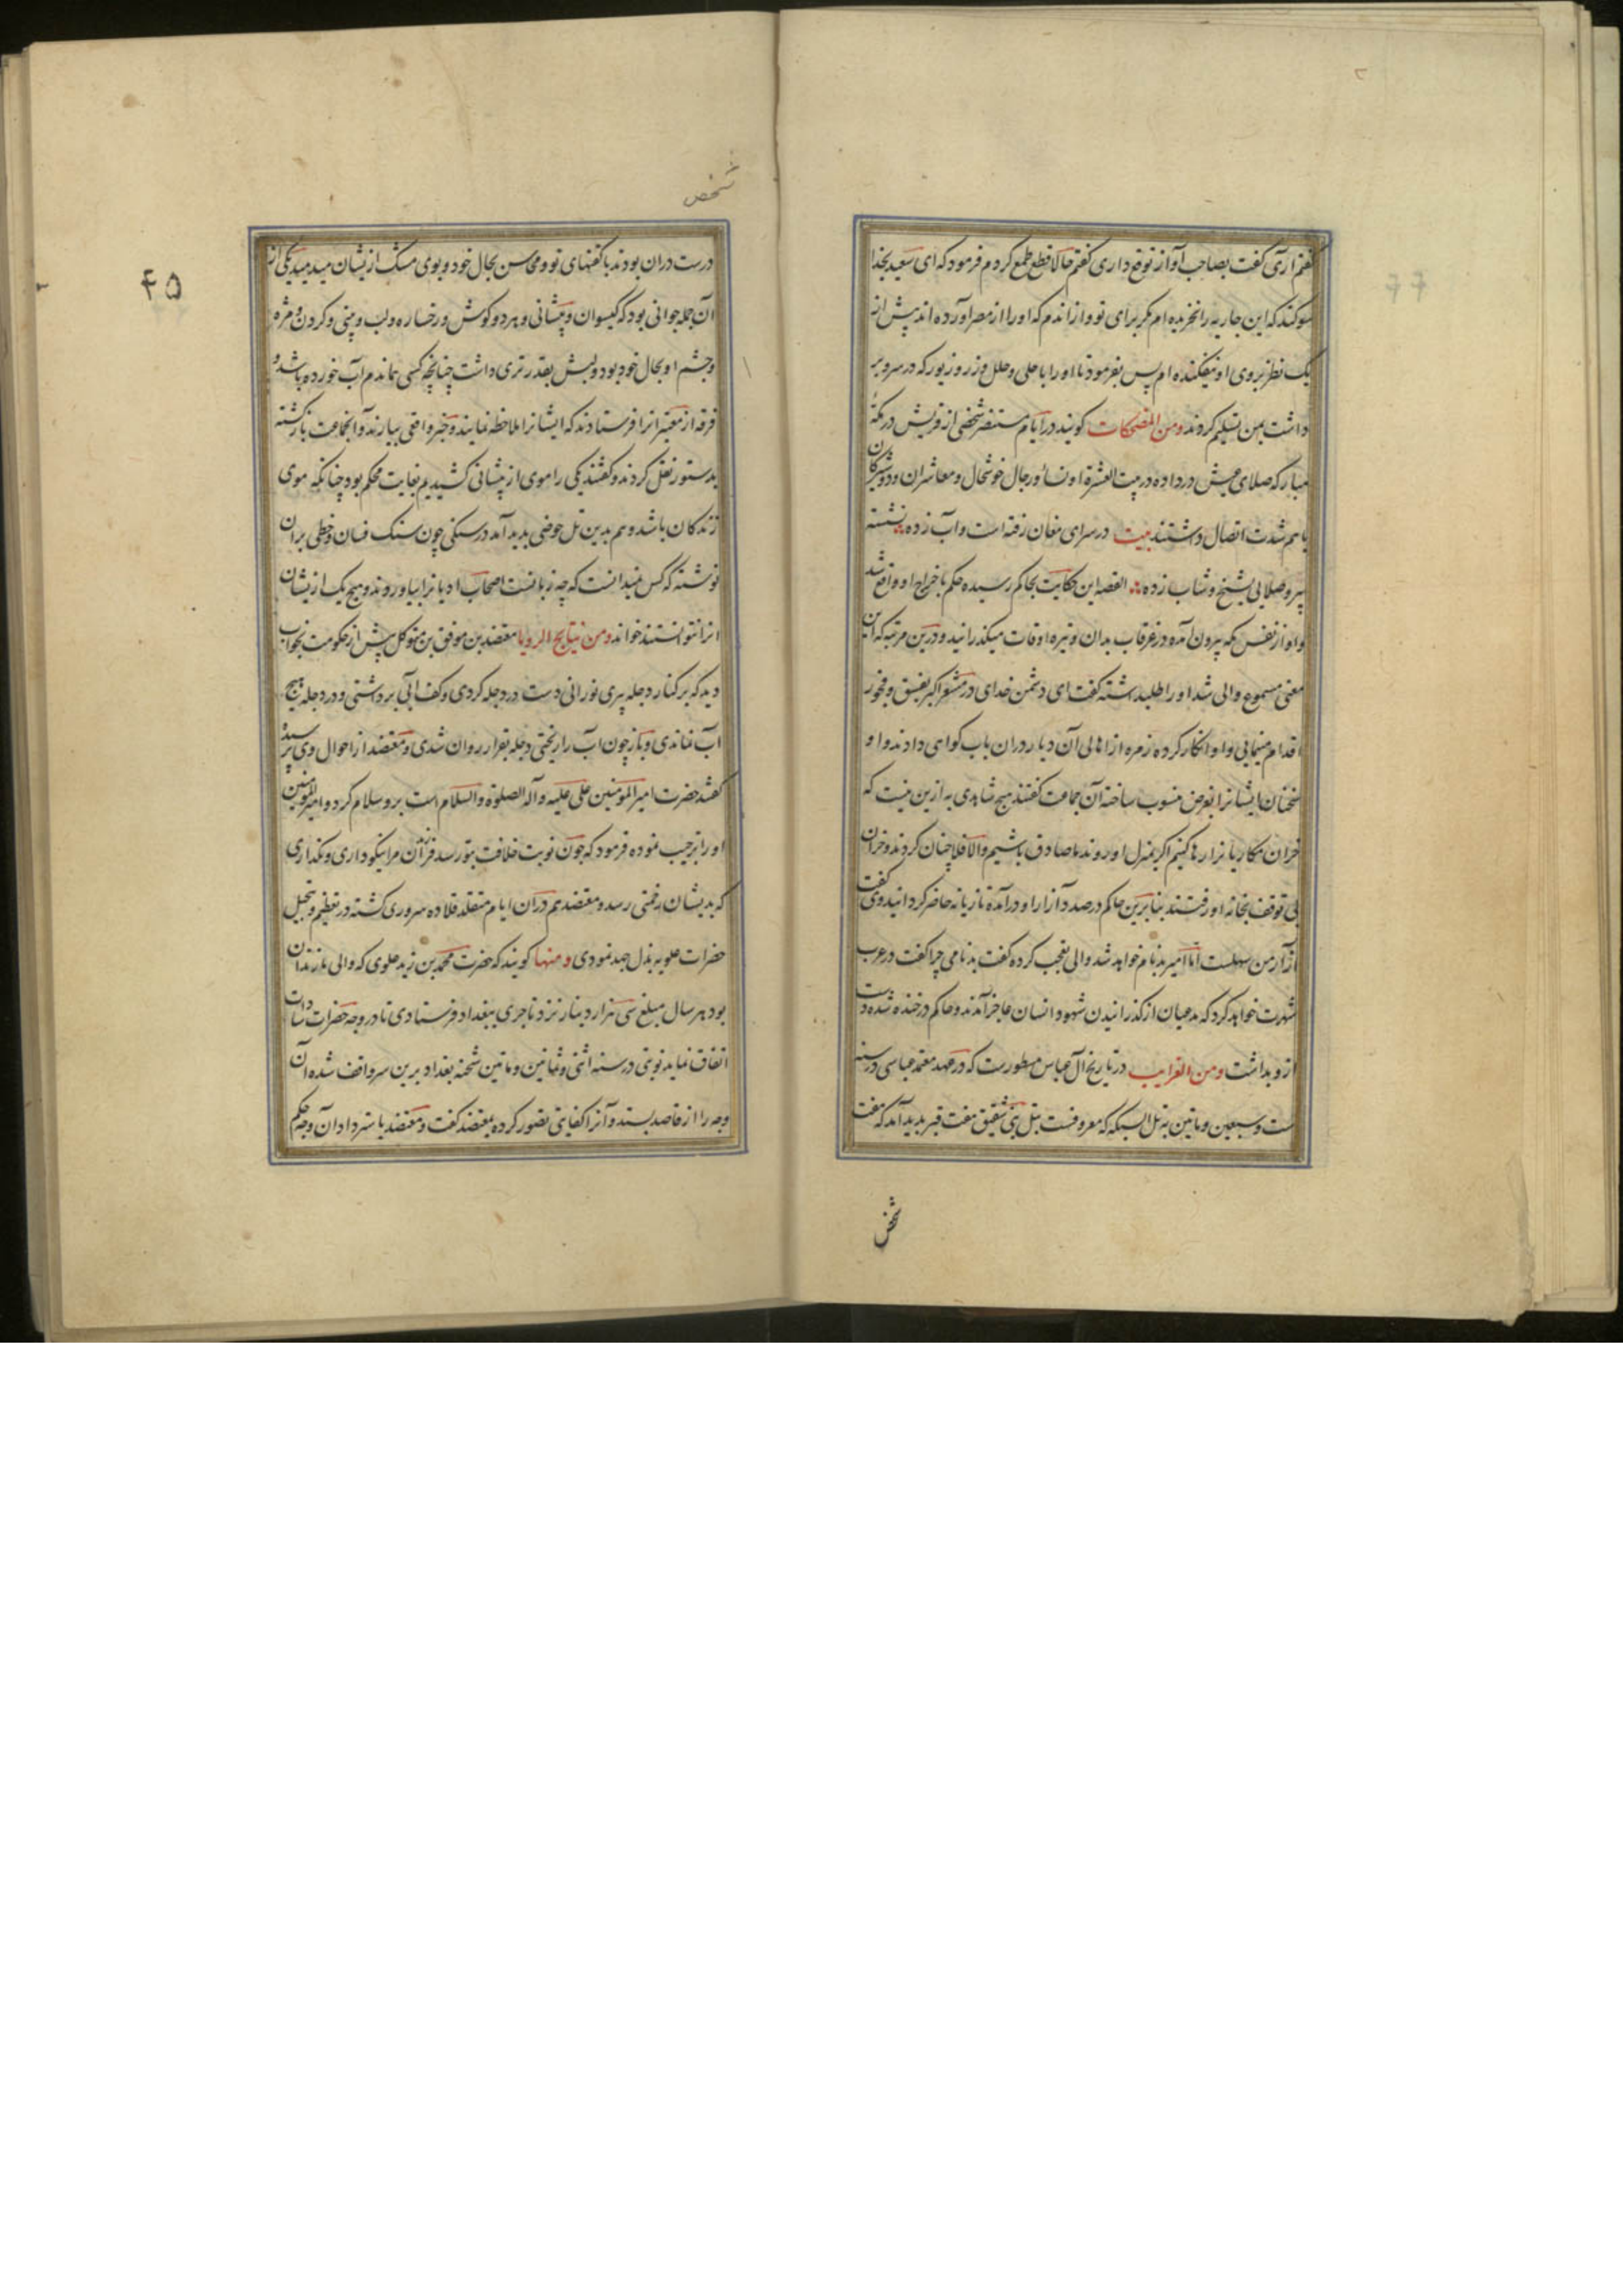 گفتم آری گفت بصاحب آواز توقع داری گفتم حالا قطع طمع کردم فرمود که ای سعید بخدا
سوکند که این جاریه را نخریده ام مکر برای تو و از اندم که او را از مصر آورده اند پیش از
یک نظر بروی او نیفکنده ام پس بفرمود تا او را با حلی و حلل و زر و زیور که در سر و بر
داشت بمن تسلیم کردند ومن المضحکات کویند در ایام مستنصر شخصی از قریش در مکه
مبارکه صلای عیش در داده در بیت العشرة او نساء و رجال خوشحال و معاشران و دوشیزکان
با هم شدت اتصال داشتند بیت در سرای مغان رفته است و آب زده نشسته
پیر و صلایی بشیخ و شاب زده القصه این حکایت بحاکم رسیده حکم باخراج او واقع شد
و او از نفس مکه بیرون آمده در عرقاب بدان وتیره اوقات میکذرانید و درین مرتبه که این
معنی مسموع والی شد او را طلبداشته گفت ای دشمن خدای در مشعر اکبر بفسق و فجور
اقدام مینمایی و او انکار کرده زمره از اهالی آن دیار دران باب کواهی دادند و او
سخنان ایشانرا بغرض منسوب ساخته آن جماعت گفتند هیچ شاهدی به ازین نیست که
خران مکاریانرا رها کنیم اکر بمنزل او روند ما صادق باشیم والا فلا چنان کردند و خران
بی توقف بخانه او رفتند بنابرین حاکم درصدد آزار او درآمده تازیانه حاضر کردانید وی گفت
آزار من سهلست اما امیر بدنام خواهد شد والی تعجب کرده گفت بدنامی چرا گفت در عرب
شهرت خواهد کرد که مدعیان از کذرانیدن شهود انسان عاجز آمدند و حاکم در خنده شده دست
ازو بداشت ومن الغرایب در تاریخ آل عباس مسطورست که در عهد معتمد عباسی در سنه
ست و سبعین و مایتین به تل السبکه که معروفست بتل بنی شقیق هفت قبر پدید آمد که هفت
شخص
شخص
۴۵
درست دران بودند با کفنهای نو و محاسن بحال خود و بوی مسک ازیشان میدمید یکی از
آن جمله جوانی بود که کیسوان و پیشانی و هر دو کوش و رخساره و لب و بینی و کردن و مژه
و چشم او بحال خود بود و لبش بقدر تری داشت چنانچه کسی هماندم آب خورده باشد و
فرقه از معتبرانرا فرستادند که ایشانرا ملاحظه نمایند و خبر واقعی بیارند و آنجماعت بازکشته
بدستور نقل کردند و گفتند یکی را موی از پیشانی کشیدیم بغایت محکم بود چنانکه موی
زندکان باشد و هم بدین تل حوضی پدید آمد در سنکی چون سنک فسان و خطی بران
نوشته که کس نمیدانست که چه زبانست اصحاب ادیانرا بیاوردند و هیچ یک ازیشان
انرا نتوانستند خواند ومن نتایج الرویا معتضد بن موفق بن متوکل پیش از حکومت بخواب
دید که بر کنار دجله پیری نورانی دست در دجله کردی و کف آبی برداشتی و در دجله هیچ
آب نماندی و باز چون آب را ریختی دجله بقرار روان شدی و معتضد از احوال وی پرسید
گفتند حضرت امیرالمؤمنین علی علیه و آله الصلوة والسلام است برو سلام کرد و امیرالمؤمنین
او را ترحیب نموده فرمود که چون نوبت خلافت بتو رسد فرزندان مرا نیکو داری و نکذاری
که بدیشان زحمتی رسد و معتضد هم دران ایام متقلد قلاده سروری کشته در تعظیم و تبجیل
حضرات علویه بذل جهد نمودی ومنها کویند که حضرت محمد بن زید علوی که والی مازندران
بود هر سال مبلغ سی هزار دینار نزد تاجری ببغداد فرستادی تا در وجه حضرات سادات
انفاق نماید نوبتی در سنه اثنی و ثمانین و مایتین شحنه بغداد برین سر واقف شده آن
وجه را از قاصد بستد و آنرا کفایتی تصور کرده بمعتضد گفت و معتضد باسترداد آن وجه حکم